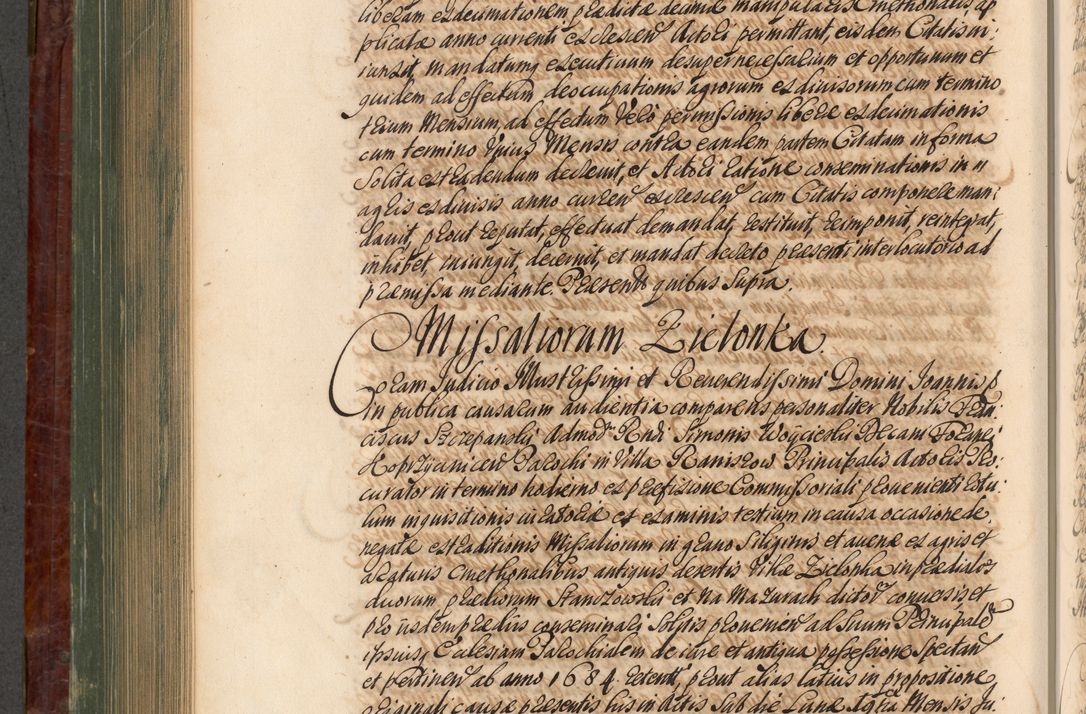 liberam exdecimationem praedictae decimae manipularis cmethonalis ap
plicatae anno currenti excrescen Actori permittant, eisdem Citatis in:
iunxit, mandatumq executivum desuper necessarium et opportunum et
quidem ad effectum deoccupationis agrorum exdivisorum cum termino
trium Mensium, ad effectum vero permissionis liberae exdecimationis
cum termino unius Mensis contra eandem partem Citatam in forma
solita extradendum decrevit, et Actori ratione conseminationis in
agris exdivisis anno curren excrescen cum Citatis componere man:
davit, prout reputat, effectuat demandat, restituit, reimponit, reintegrat,
inhibet, iniungit, decernit, et mandat decreto praesenti interlocutorio ad
praemissa mediante. Praesentib quibus supra.
Missaliorum Zielonka.
Coram Judicio Illustrissimi et Reverendissimi Domini Joannis
in publica causarum audientia comparens personaliter Nobilis Fran:
ciscus Szczepanski Admodr Rndi Simonis Woyciecki Decani Foranei
Koprzywnicen Parochi in Villa Raniszow Principalis Actoris Pro:
curator in termino hodierno ex praefixione Commissoriali provenienti rotu:
lum inquisitionis iuratoriae et examinis testium in causa occasione de:
negatae extraditionis Missaliorum in grano siliginis et avenae ex agris et
araturis cmethonalibus antiquis desertis Villae Zielonka in praedialos
duorum praediorum Stanczowski et Na Mazurach dictor conversis et
pro iisdem praediis conseminari solitis provenien ad suum Principale
ipsiusq Ecclesiam Parochialem de iure et antiqua possessione spectan
et pertinen ab anno 1684 retent, prout alias latius in propositione
originali causae praesentis his in Actis sub die Lunae Mensis Ju: